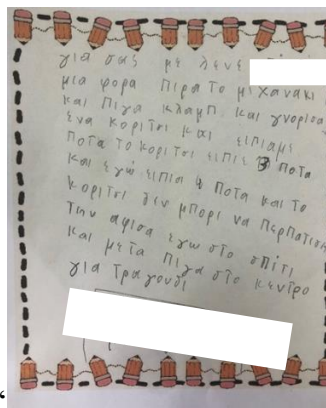 για σας με λενε
μια φορα πιρα το μιχανακι
και πιγα κλαμπ και γνορισα
ενα κοριτσι και ιπιαμε
ποτα το κοριτσι ιπιε 3 ποτα
και εγώ ιπια 4 ποτα και το
κοριτσι δεν μπορι να περπατισι
τιην αφισα εγω στο σπιτι
και μετα πιγα στο κεντρο
για τραγουδι